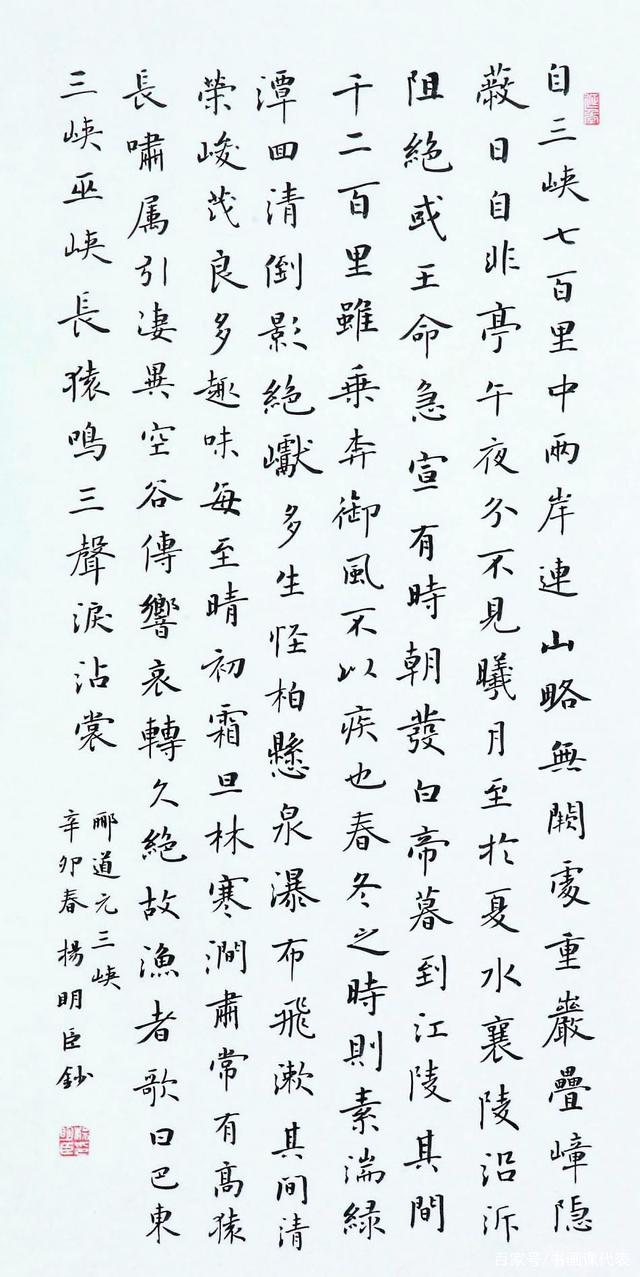 自三峽七百里中兩岸連山略無闕處重巖疊嶂隱
蔽日自非亭午夜分不見曦月至於夏水襄陵沿泝
阻絶或王命急宣有時朝發白帝暮到江陵其間
千二百里雖乗奔御風不以疾也春冬之時則素湍緑
潭回清倒影絶巘多生怪柏懸泉瀑布飛漱其間清
榮峻茂良多趣味每至晴初霜旦林寒澗肅常有高猿
長嘯属引淒異空谷傳響哀轉久絶故漁者歌曰巴東
三峽巫峽長猿鳴三聲淚沾裳
酈道元三峽
辛卯春楊明臣鈔
百家号/书画课代表